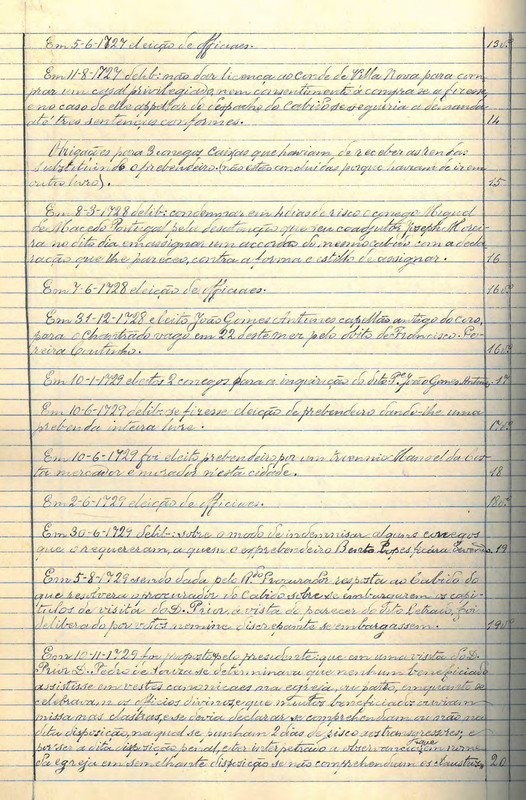 Em 5-6-1727 eleição de officiaes. 13vº
Em 11-8-1727 delib: não dar licença ao Conde de Villa Nova para com
prar um casal privilegiado, nem consentimento á compra se a fizesse,
e no caso de elle appellar do despacho do Cabido se seguiria a demanda
até tres sentenças conformes. 14
Obrigações para 3 conegos Cuizas que haviam de receber as rendas
substituindo o prebendeiro (não estão concluidas porque haviam de ir em
outro livro). 15
Em 8-3-1728 delib: condemnar em 4 dias de risco o conego Miguel
de Macedo Portugal pela desattenção que seu coadjutor Joseph Morei-
ra no dito dia em assignar um accordão do mesmo cabido com a decla
ração que lhe pareceo, contra a forma e estillo de assignar. 16
Em 7-6-1728 eleição de officiaes. 16vº
Em 31-12-1728 eleito João Gomes Antunes capellão antigo do coro,
para o Chantrado vago em 22 deste mez pelo obito de Francisco Pe-
reira Coutinho. 16vº
Em 10-1-1729 eleitos 2 conegos para a inquirição do dito Pe João Gomes Antunes 17
Em 10-6-1729 delib: se fizesse eleição de prebendeiro dando-lhe uma
prebenda inteira livre. 17vº
Em 10-6-1729 foi eleito prebendeiro por um triennio Manoel da Cos
ta mercador e morador n'esta cidade. 18
Em 2-6-1729 eleição de officiaes. 18vº
Em 30-6-1729 delib: sobre o modo de indemnisar alguns conegos
que o requereram, a quem o exprebendeiro Bento Lopes ficara devendo. 19
Em 5-8-1729 sendo dada pelo Rdo Procurador resposta ao Cabido do
que resolvera o procurador do Cabido sobre se embargarem os capi-
tulos de visita do D. Prior, á vista do parecer do dito Letrado, foi
deliberado por votos nemine discrepante se embargassem. 19vº
Em 10-11-1729 foi proposto pelo presidente: que em uma visita do D.
Prior D. Pedro de Souza se determinara que nenhum beneficiado
assistisse em vestes canonicaes na egreja, ou patio, emquanto se
celebravam os officios divinos, e que muitos beneficiados ouviam
missa nas claustras, e se devia declarar se comprehendiam ou não na
dita disposição, na qual se punham 2 dias de risco aos transgressores, e
por ser a dita disposição penal, e ter interpretado a observancia que em nome
da egreja em semelhante disposição se não comprehendiam os claustros, 20